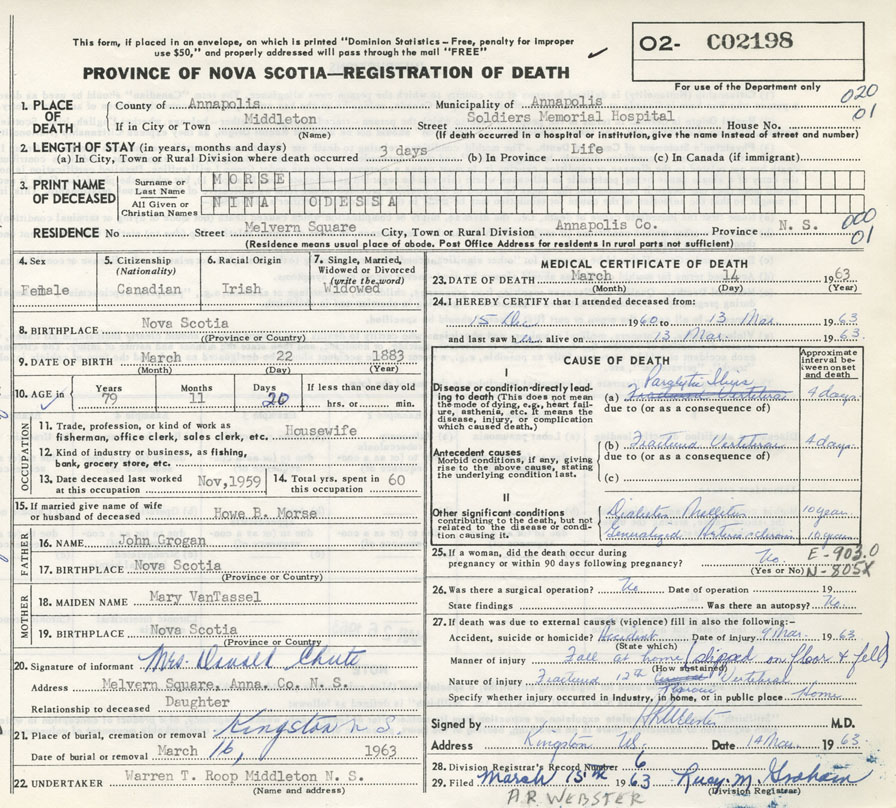 This form, if placed in an envelope, on which is printed "Dominion Statistics – Free, penalty for improper
use $50," and properly addressed will pass through the mail "FREE"
O2- C02198
PROVINCE OF NOVA SCOTIA—REGISTRATION OF DEATH
For use of the Department only
020
01
1. PLACE OF DEATH
County of Annapolis Municipality of Annapolis
If in City or Town Middleton Street Soldiers Memorial Hospital House No.
(Name) (If death occurred in a hospital or institution, give the name instead of street and number)
2. LENGTH OF STAY (in years, months and days)
(a) In City, Town or Rural Division where death occurred 3 days (b) In Province Life (c) In Canada (if immigrant)
3. PRINT NAME OF DECEASED
Surname or Last Name MORSE
All Given or Christian Names NINA ODESSA
RESIDENCE No Street Melvern Square City, Town or Rural Division Annapolis Co. Province N. S.
000
01
(Residence means usual place of abode. Post Office Address for residents in rural parts not sufficient)
4. Sex
Female
5. Citizenship (Nationality)
Canadian
6. Racial Origin
Irish
7. Single, Married, Widowed or Divorced (write the word)
Widowed
8. BIRTHPLACE Nova Scotia
((Province or Country)
9. DATE OF BIRTH March 22 1883
(Month) (Day) (Year)
10. AGE in Years Months Days If less than one day old
79 11 20 hrs. or min.
OCCUPATION
11. Trade, profession, or kind of work as fisherman, office clerk, sales clerk, etc. Housewife
12. Kind of industry or business, as fishing, bank, grocery store, etc.
13. Date deceased last worked at this occupation Nov, 1959
14. Total yrs. spent in this occupation 60
15. If married give name of wife or husband of deceased Howe B. Morse
FATHER
16. NAME John Grogan
17. BIRTHPLACE Nova Scotia
(Province or Country)
MOTHER
18. MAIDEN NAME Mary VanTassel
19. BIRTHPLACE Nova Scotia
(Province or Country)
20. Signature of informant Mrs. Donald Chute
Address Melvern Square, Anna. Co. N. S.
Relationship to deceased Daughter
21. Place of burial, cremation or removal Kingston N. S.
Date of burial or removal March 16, 1963
22. UNDERTAKER Warren T. Roop Middleton N. S.
(Name and address)
MEDICAL CERTIFICATE OF DEATH
23. DATE OF DEATH March 14 1963
(Month) (Day) (Year)
24. I HEREBY CERTIFY that I attended deceased from:
15 Dec 1960 to 13 Mar 1963
and last saw her alive on 13 Mar. 1963.
CAUSE OF DEATH
Approximate interval between onset and death
I
Disease or condition directly leading to death (This does not mean the mode of dying, e.g., heart failure, asthenia, etc. It means the disease, injury, or complication which caused death.)
(a) Paralytic Ileus 4 days.
Fractured Vertebrae
due to (or as a consequence of)
Antecedent causes
Morbid conditions, if any, giving rise to the above cause, stating the underlying condition last.
(b) Fractured Vertebrae 4 days.
due to (or as a consequence of)
(c)
II
Other significant conditions
contributing to the death, but not related to the disease or condition causing it.
Diabetes Mellitus 10 years
Generalized Arteriosclerosis 10 years
25. If a woman, did the death occur during pregnancy or within 90 days following pregnancy? No.
(Yes or No)
E-903.0
N-805X
26. Was there a surgical operation? No Date of operation 19
State findings Was there an autopsy? No.
27. If death was due to external causes (violence) fill in also the following:–
Accident, suicide or homicide? Accident Date of injury 9 Mar. 1963
(State which)
Manner of injury Fall at home (slipped on floor & fell)
(How sustained)
Nature of injury Fractured 12th Thoracic Vertebrae
Specify whether injury occurred in Industry, in home, or in public place Home
Signed by M.D.
Address Kingston NS. Date 14 Mar. 1963
28. Division Registrar's Record Number 6
29. Filed March 15th 1963 Lucy M. Graham
(Division Registrar)
A.R. WEBSTER